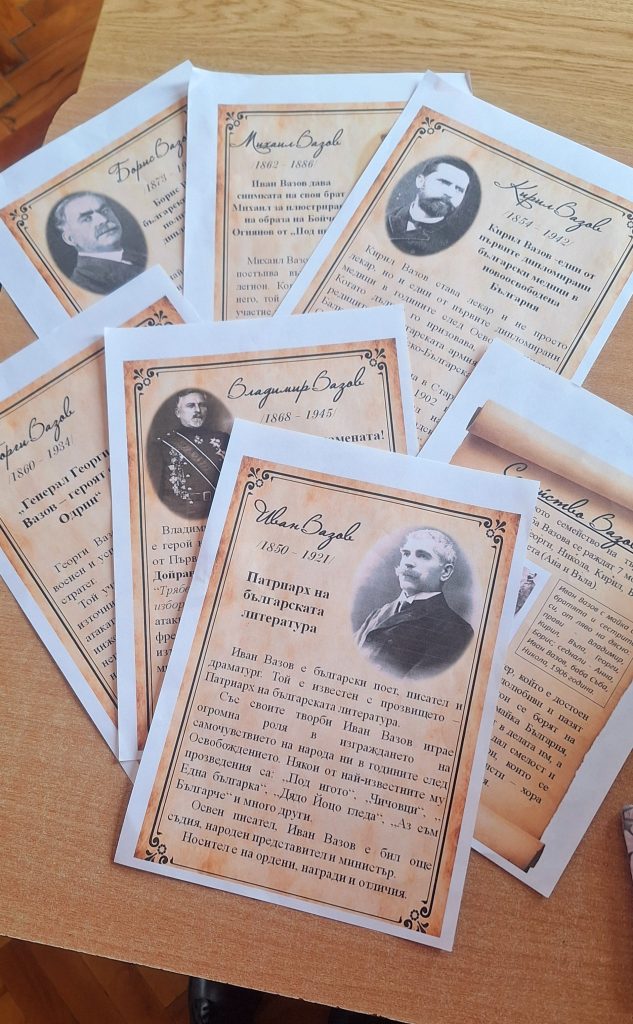 Борис Вазо
1873 -
Борис
българск
Михаил Вазов
/1862 – 1886/
Иван Вазов дава
снимката на своя брат
Михаил за илюстрира
на образа на Бойч
Огнянов от „Под
Михаил Вазо
постъпва въ
легион. Ко
него, той
участие
Кирил Вазов
1854 - 1942
Кирил Вазов -един от
първите дипломирани
български медици в
новоосвободена
България
Кирил Вазов става лекар и не просто
лекар, но и един от първите дипломирани
медици в годините след Осво
Когато дългът го призовава,
редиците
Балк
в Стар
1902
орги Вазов
/1860 – 1934/
„Генерал Георги
Вазов – героят
Одрин“
Георги Вазо
военен и
стратег.
Той уч
източни
атакат
инже
Владимир Вазов
/1868 – 1945/
мената!
Владими
е герой
от Първ
Дойран
“Трябв
избор
атак
фре
Семейство Вазов
ото семейство на
ба Вазова се раждат 7
еорги, Никола, Кирил,
ета (Ана и Въла)
Иван Вазов с майка
братята и сестрите
си, от ляво на дясно:
Владимир,
Кирил, Въла, Георги,
Борис; седнали - Анна,
Иван Вазов, баба Съба,
Никола 1906 година.
ер, който е достоен
долюбиви и пазят
които се борят на
майка България,
в делата им, а
дал смелост и
ри, които се
исти – хора
Иван Вазов
/1850 – 1921/
Патриарх на
българската
литература
Иван Вазов е български поет, писател и
драматург. Той е известен с прозвището –
Патриарх на българската литература.
Със своите творби Иван Вазов играе
огромна роля в изграждането на
самочувствието на народа ни в годините след
Освобождението. Някои от най-известните му
прозведения са: „Под игото“, „Чичовци“, „
Една българка“, „Дядо Йоцо гледа“, „Аз съм
Българче“ и много други.
Освен писател, Иван Вазов е бил още
съдия, народен представител и министър.
Носител е на ордени, награди и отличия.